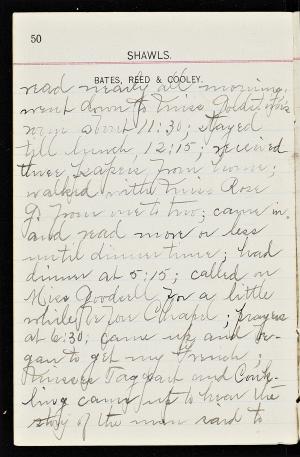 50
SHAWLS.
BATES, REED & COOLEY.
read nearly all morning.
went down to Miss Goldthwaite's
room about 11:30; stayed
till lunch, 12:15; received
three papers from home;
walked with Miss Rose
G. from one to two; came in
and read more or less
until dinner time; had
dinner at 5:15; called on
Miss Goodsell for a little
while before Chapel; prayers
at 6:30; came up and be-
gan to get my French;
Misses Taggart and Conk-
ling came up to hear the
story of the man said to